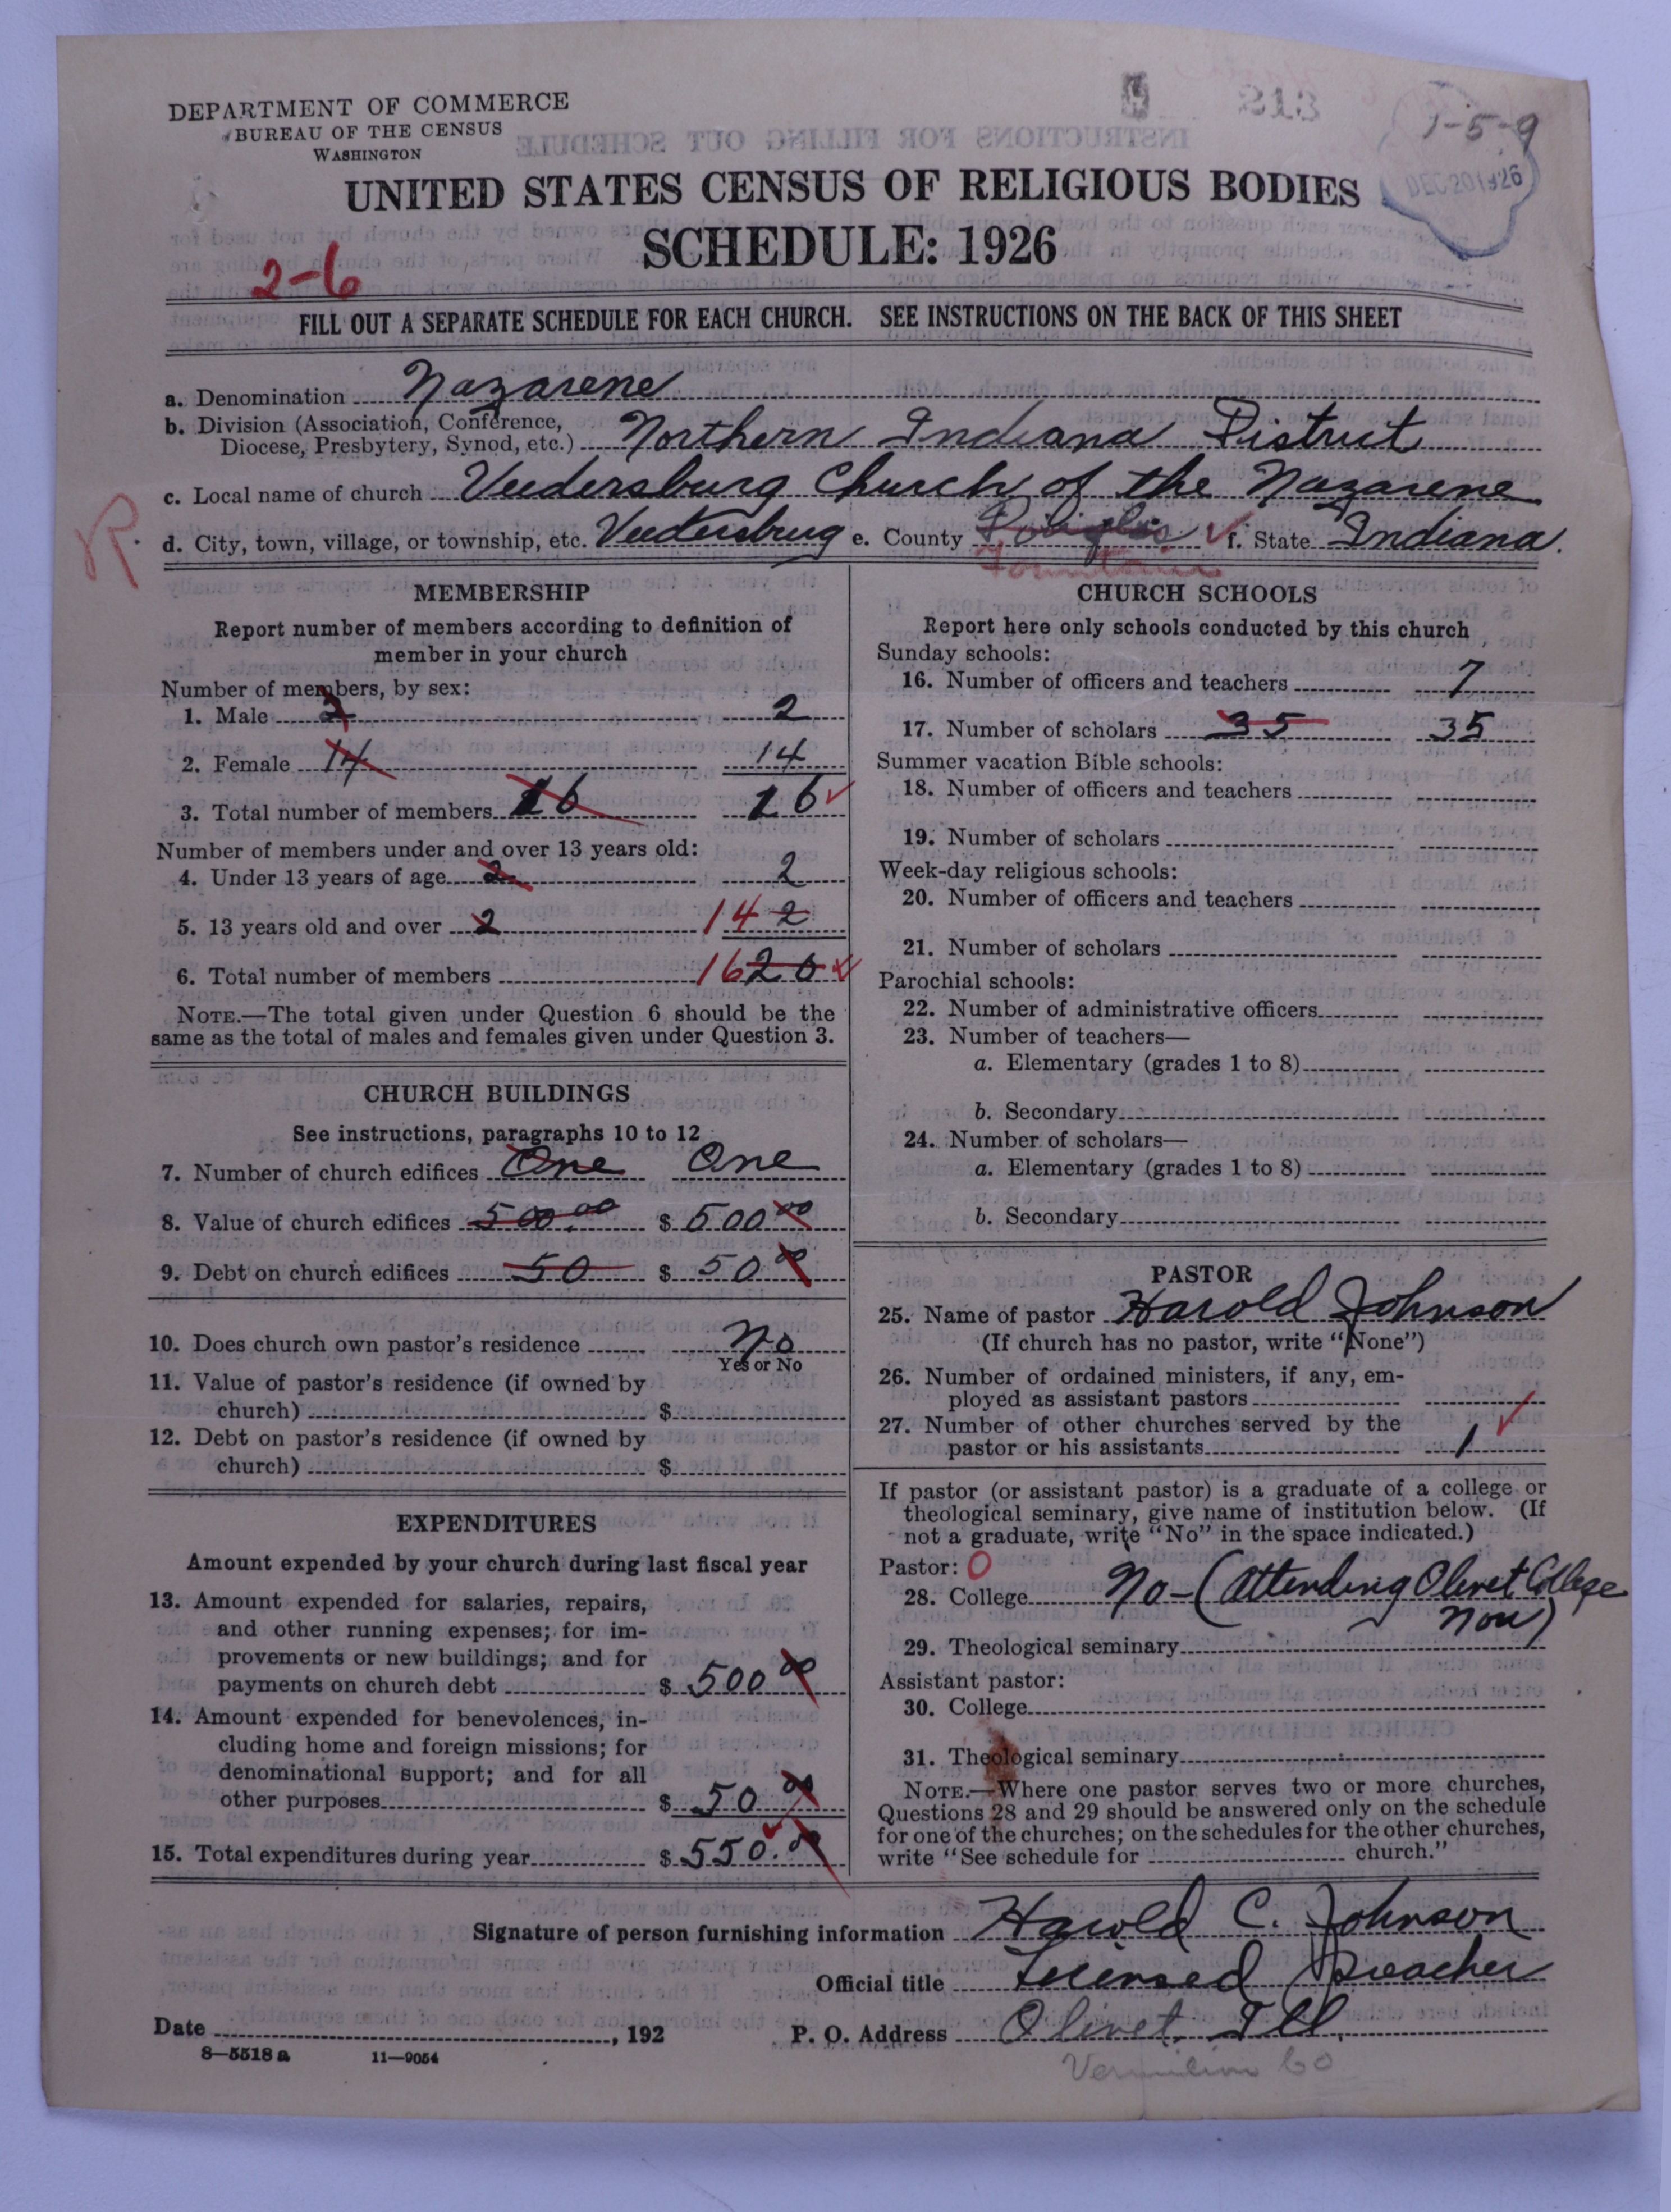 213
1-5-9
DEC 20 1926
DEPARTMENT OF COMMERCE
BUREAU OF THE CENSUS
WASHINGTON
UNITED STATES CENSUS OF RELIGIOUS BODIES
SCHEDULE: 1926
2-6
FILL OUT A SEPARATE SCHEDULE FOR EACH CHURCH. SEE INSTRUCTIONS ON THE BACK OF THIS SHEET
a. Denomination Nazarene
b. Division (Association, Conference,
Diocese, Presbytery, Synod, etc.) Northern Indiana District
c. Local name of church Veedersburg Church of the Nazarene
R
d. City, town, village, or township, etc. Veedersbrug e. County f. State Indiana.
Fountain
MEMBERSHIP
Report number of members according to definition of
member in your church
Number of members, by sex:
1. Male 2 2
2. Female 14 14
3. Total number of members 16 16
Number of members under and over 13 years old:
4. Under 13 years of age 2 2
5. 13 years old and over 2 14 2
6. Total number of members 16 20
NOTE.—The total given under Question 6 should be the
same as the total of males and females given under Question 3.
CHURCH BUILDINGS
See instructions, paragraphs 10 to 12
7. Number of church edifices One One
8. Value of church edifices 500.00 $ 500 00
9. Debt on church edifices 50 $ 50 00
10. Does church own pastor's residence No
Yes or No
11. Value of pastor's residence (if owned by
church) $
12. Debt on pastor's residence (if owned by
church) $
EXPENDITURES
Amount expended by your church during last fiscal year
13. Amount expended for salaries, repairs,
and other running expenses; for im-
provements or new buildings; and for
payments on church debt $ 500 00
14. Amount expended for benevolences, in-
cluding home and foreign missions; for
denominational support; and for all
other purposes $ 50 00
15. Total expenditures during year $ 550.00
CHURCH SCHOOLS
Report here only schools conducted by this church
Sunday schools:
16. Number of officers and teachers 7
17. Number of scholars 35 35
Summer vacation Bible schools:
18. Number of officers and teachers
19. Number of scholars
Week-day religious schools:
20. Number of officers and teachers
21. Number of scholars
Parochial schools:
22. Number of administrative officers
23. Number of teachers—
a. Elementary (grades 1 to 8)
b. Secondary
24. Number of scholars—
a. Elementary (grades 1 to 8)
b. Secondary
PASTOR
25. Name of pastor Harold Johnson
(If church has no pastor, write "None")
26. Number of ordained ministers, if any, em-
ployed as assistant pastors
27. Number of other churches served by the
pastor or his assistants 1
If pastor (or assistant pastor) is a graduate of a college or
theological seminary, give name of institution below. (If
not a graduate, write "No" in the space indicated.)
Pastor: 0
28. College No - (Attending Olivet College
Now)
29. Theological seminary
Assistant pastor:
30. College
31. Theological seminary
NOTE.—Where one pastor serves two or more churches,
Questions 28 and 29 should be answered only on the schedule
for one of the churches; on the schedules for the other churches,
write "See schedule for church."
Signature of person furnishing information Harold C. Johnson
Official title Licensed Preacher
Date , 192 P. O. Address Olivet, Ill.
8—5518 a 11—9054
Vermilion Co